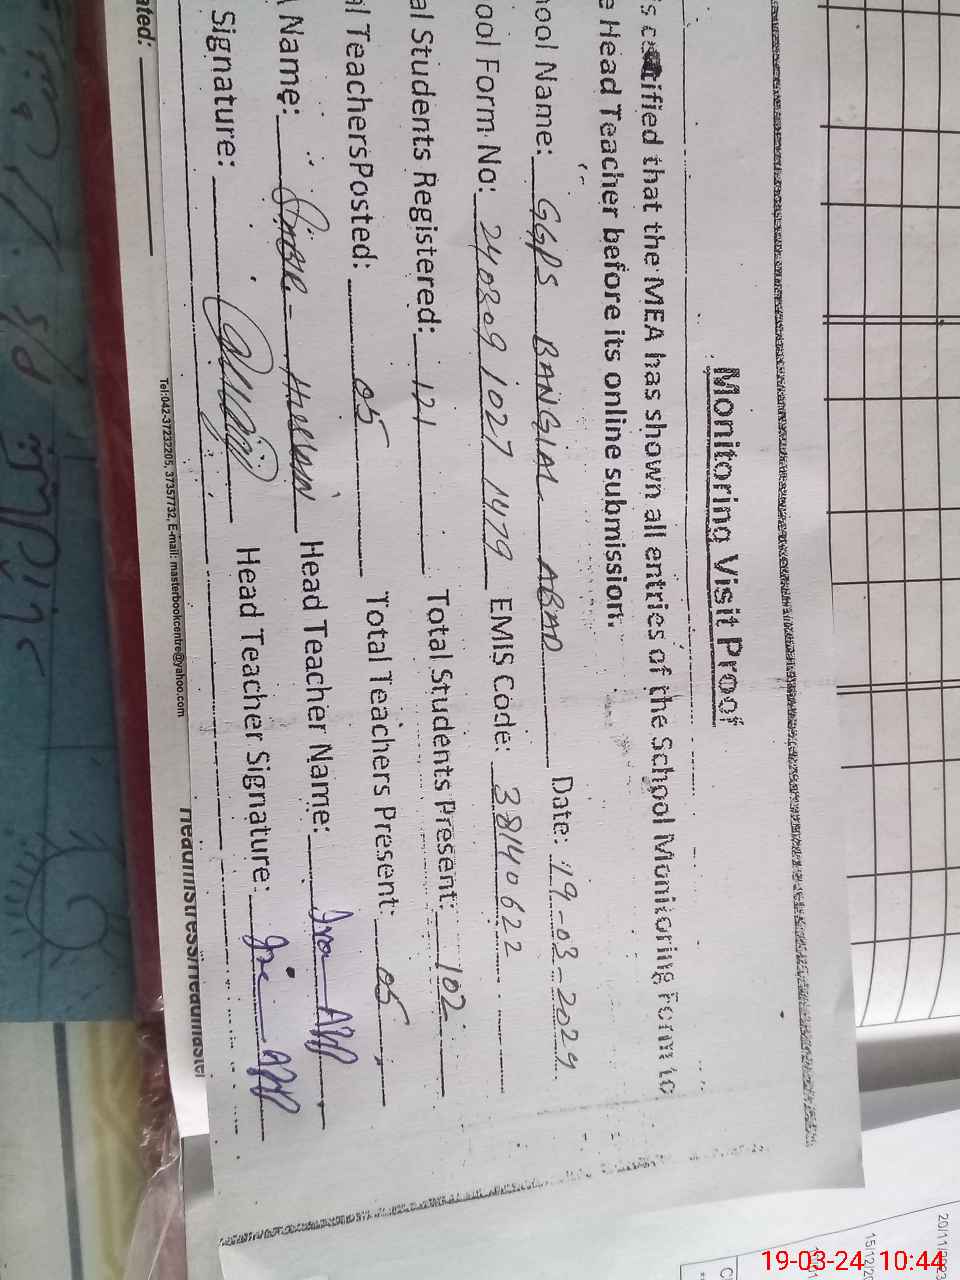 Monitoring Visit Proof
s certified that the MEA has shown all entries of the School Monitoring Form to
e Head Teacher before its online submission.
ool Name: GGPS BANGIAL ABAD Date: 19-03-2024
ool Form No: 240309 1027 1479 EMIS Code: 38140622
al Students Registered: 121 Total Students Present: 102
al TeachersPosted: 05 Total Teachers Present: 05
Name: Hassan Head Teacher Name:
Signature: Head Teacher Signature:
Tel:042-37232205, 37357732, E-mail: masterbookcentre@yahoo.com
Headmistress/Headmaster
ated:
20/11/2023
19-03-24 10:44